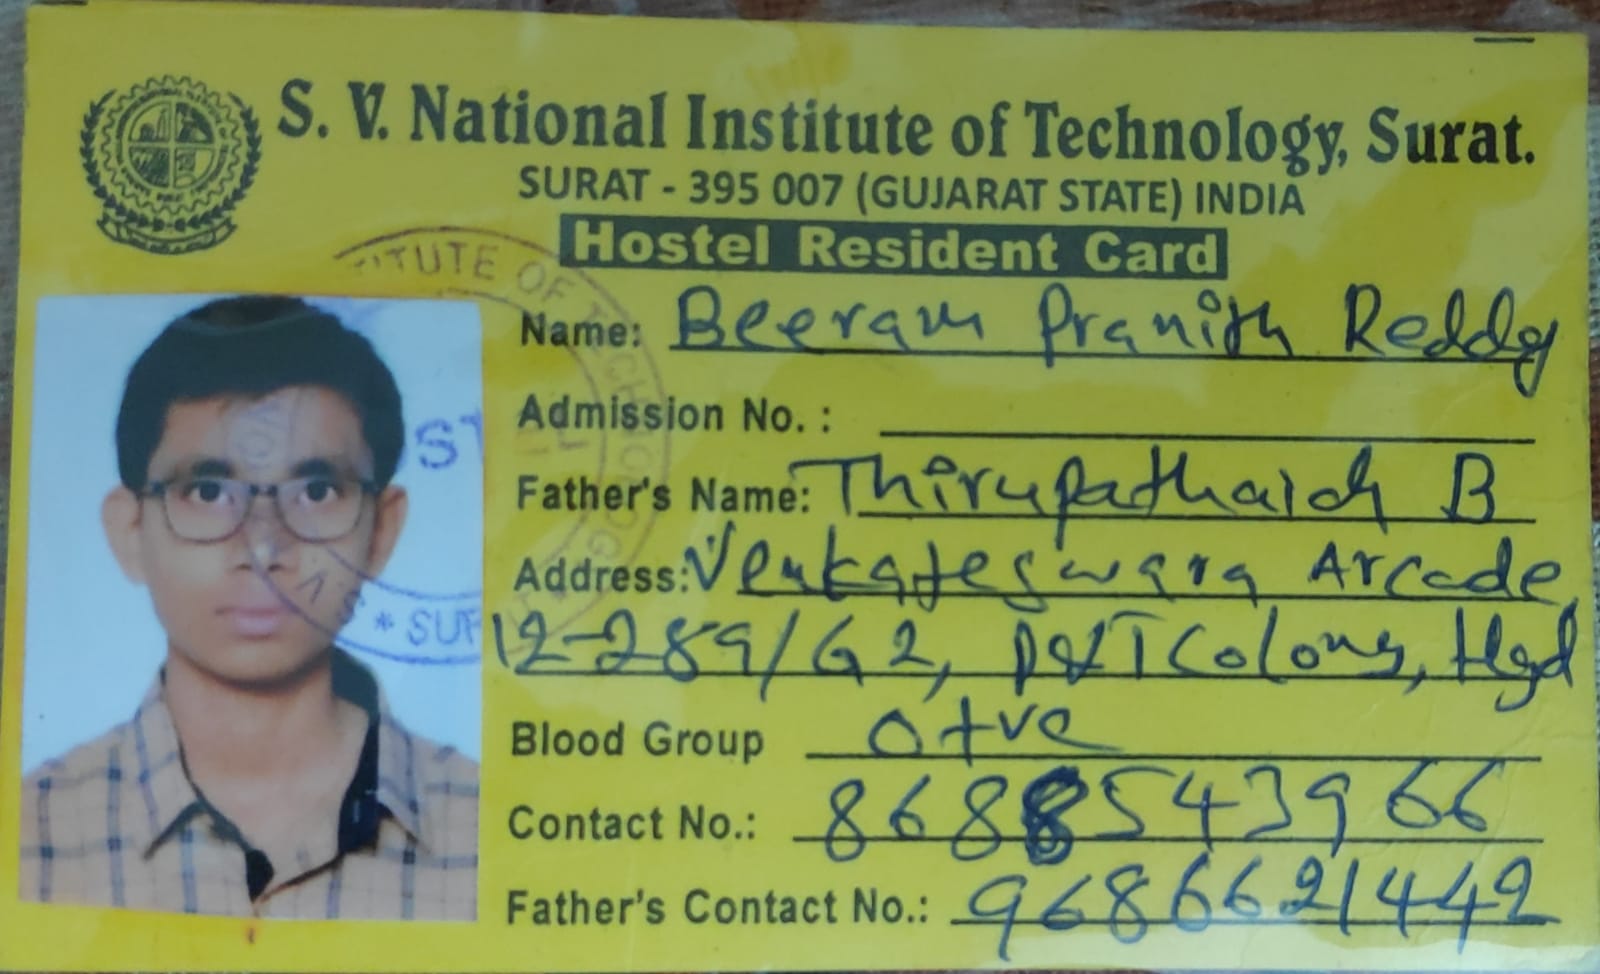 S. V. National Institute of Technology, Surat.
SURAT - 395 007 (GUJARAT STATE) INDIA
Hostel Resident Card
Name: Beeram Pranith Reddy
Admission No. :
Father's Name: Thirupathaiah B
Address: Venkateswara Arcade,
12-289/G2, P&T Colony, Hyd
Blood Group O+ve
Contact No.: 8688543966
Father's Contact No.: 9686621442
TITUTE OF TECHNOLOG
ST
S.V
* SUR